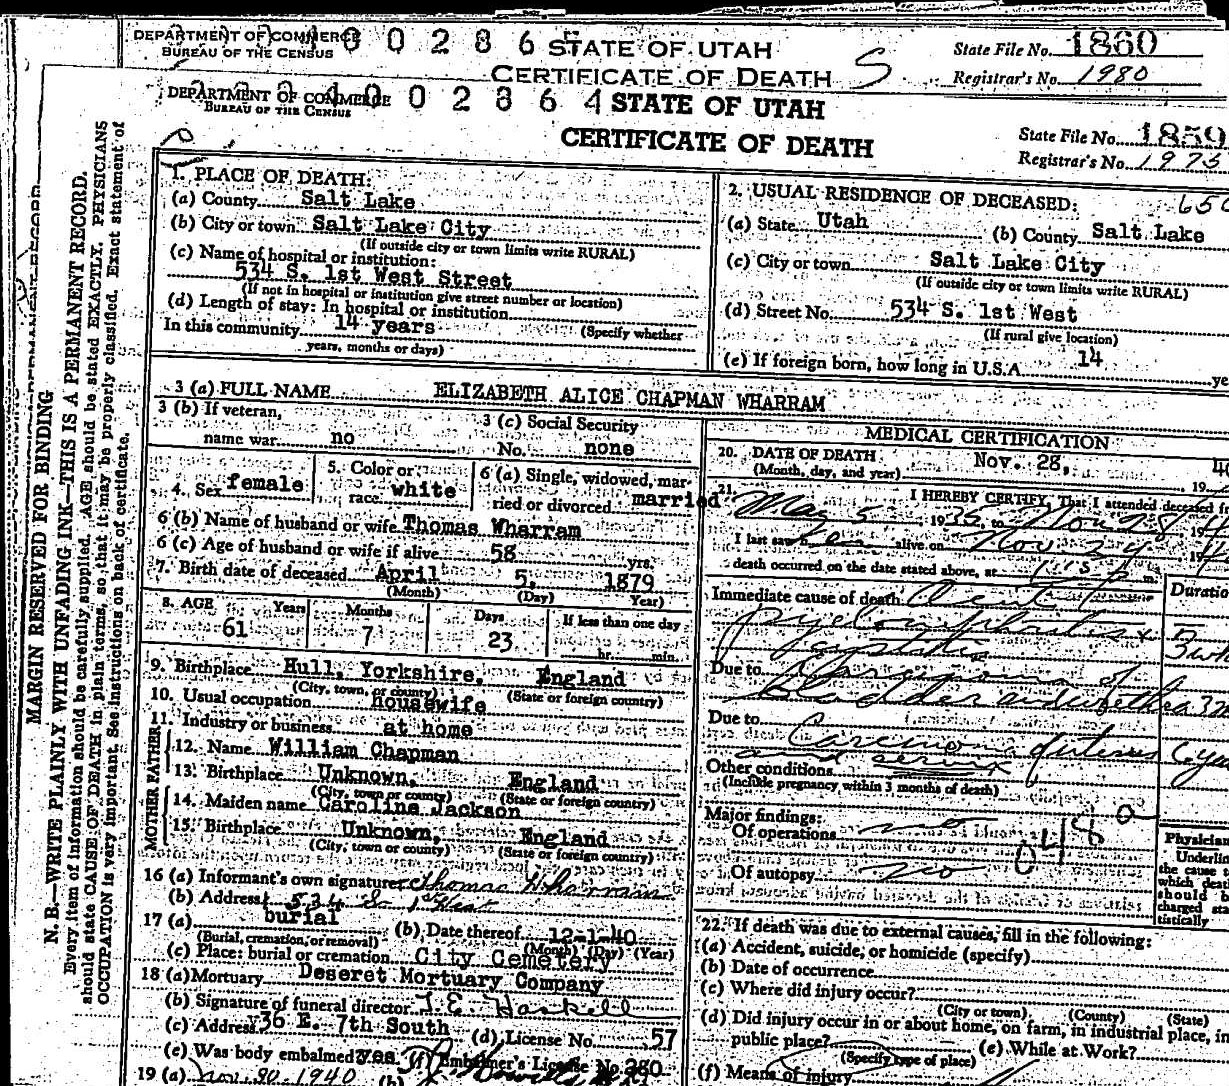 DEPARTMENT OF COMMERCE
BUREAU OF THE CENSUS
STATE OF UTAH
CERTIFICATE OF DEATH
State File No. 1860
Registrar's No. 1980
DEPARTMENT OF COMMERCE
BUREAU OF THE CENSUS
STATE OF UTAH
CERTIFICATE OF DEATH
State File No. 1859
Registrar's No. 1975
MARGIN RESERVED FOR BINDING
N. B.—WRITE PLAINLY WITH UNFADING INK—THIS IS A PERMANENT RECORD.
Every item of information should be carefully supplied. AGE should be stated EXACTLY. PHYSICIANS
should state CAUSE OF DEATH in plain terms, so that it may be properly classified. Exact statement of
OCCUPATION is very important. See instructions on back of certificate.
1. PLACE OF DEATH:
(a) County Salt Lake
(b) City or town Salt Lake City
(If outside city or town limits write RURAL)
(c) Name of hospital or institution:
534 S. 1st West Street
(If not in hospital or institution give street number or location)
(d) Length of stay: In hospital or institution
In this community 14 years (Specify whether
years, months or days)
2. USUAL RESIDENCE OF DECEASED:
(a) State Utah (b) County Salt Lake
(c) City or town Salt Lake City
(If outside city or town limits write RURAL)
(d) Street No. 534 S. 1st West
(If rural give location)
(e) If foreign born, how long in U.S.A. 14
3 (a) FULL NAME ELIZABETH ALICE CHAPMAN WHARRAM
3 (b) If veteran,
name war no
3 (c) Social Security
No. none
4. Sex female
5. Color or
race white
6 (a) Single, widowed, mar-
ried or divorced married
6 (b) Name of husband or wife Thomas Wharram
6 (c) Age of husband or wife if alive 58 yrs.
7. Birth date of deceased April 5, 1879
(Month) (Day) Year)
8. AGE Years Months Days If less than one day
61 7 23 hr. min.
9. Birthplace Hull, Yorkshire, England
(City, town, or county) (State or foreign country)
10. Usual occupation housewife
11. Industry or business at home
FATHER
12. Name William Chapman
13. Birthplace Unknown, England
(City, town or county) (State or foreign country)
MOTHER
14. Maiden name Caroline Jackson
15. Birthplace Unknown, England
(City, town or county) (State or foreign country)
16 (a) Informant's own signature Thomas Wharram
(b) Address 534 So 1st West
17 (a) burial (b) Date thereof 12-1-40
(Burial, cremation, or removal) (Month) (Day) (Year)
(c) Place: burial or cremation City Cemetery
18 (a) Mortuary Deseret Mortuary Company
(b) Signature of funeral director
(c) Address 36 E. 7th South (d) License No. 57
(e) Was body embalmed? yes (f) Embalmer's License No.
19 (a) Nov. 30 1940 (b)
MEDICAL CERTIFICATION
20. DATE OF DEATH Nov. 28, 19 40
(Month, day, and year)
21. I HEREBY CERTIFY, That I attended deceased
May 5 1935, to Nov 28
I last saw her alive on Nov
death occurred on the date stated above, at m.
Immediate cause of death
Duratio
Due to Carcinoma of
bladder and urethra
Due to Carcinoma of uterus
Other conditions
(Include pregnancy within 3 months of death)
Major findings:
Of operations
Of autopsy no
Physician
Underlin
the cause t
which deat
should b
charged sta
tistically
22. If death was due to external causes, fill in the following:
(a) Accident, suicide, or homicide (specify)
(b) Date of occurrence
(c) Where did injury occur?
(City or town) (County) (State)
(d) Did injury occur in or about home, on farm, in industrial place, in
public place? (e) While at Work?
(Specify type of place)
(f) Means of injury